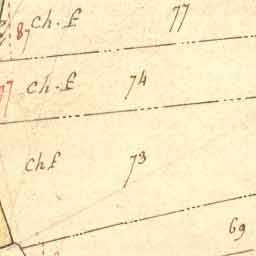 ch. f 77
87
ch. f 74
ch f 73
69